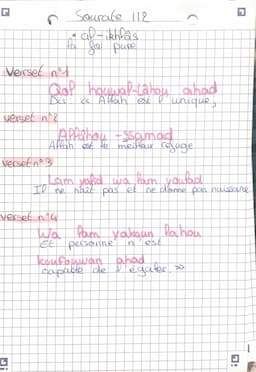 Sourate 112
• al-ikhlas
la foi pure
Verset n°1
Qol houwal-lahou ahad
Dis « Allah est l'unique,
verset n°2
Allahou-ssamad
Allah est le meilleur refuge
verset n°3
Lam yalid wa lam youlad
Il ne naît pas et ne donne pas naissance
verset n°4
Wa lam yakoun lahou
Et personne n'est
koufouwan ahad
capable de l'égaler. »